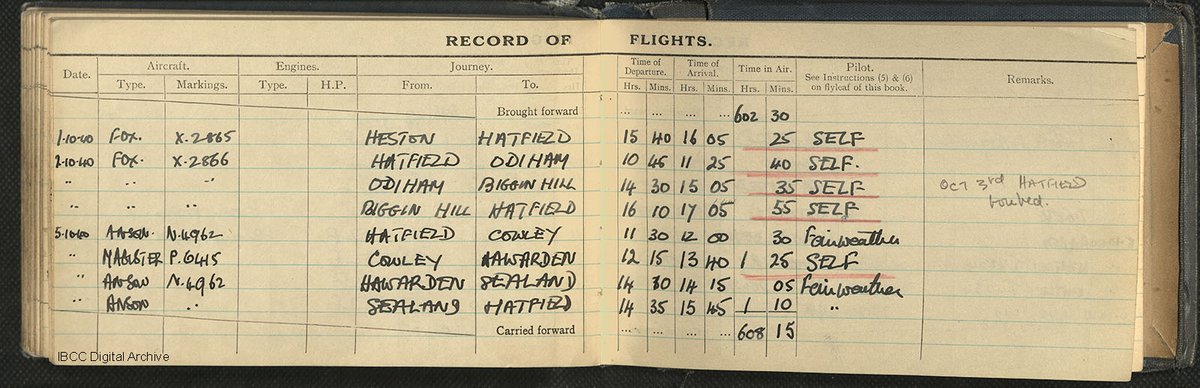 RECORD OF FLIGHTS.
Date. Aircraft. Engines. Journey. Time of Departure. Time of Arrival. Time in Air. Pilot. See Instructions (5) & (6) on flyleaf of this book. Remarks.
Type. Markings. Type. H.P. From. To. Hrs. Mins. Hrs. Mins. Hrs. Mins.
Brought forward ... ... ... ... 602 30
1.10.40 FOX. X.2865 HESTON HATFIELD 15 40 16 05 25 SELF
2.10.40 FOX. X.2866 HATFIELD ODIHAM 10 45 11 25 40 SELF.
" " " ODIHAM BIGGIN HILL 14 30 15 05 35 SELF OCT 3rd HATFIELD
" " " BIGGIN HILL HATFIELD 16 10 17 05 55 SELF bombed.
5.10.40 ANSON. N.4962 HATFIELD COWLEY 11 30 12 00 30 Fairweather
" MAGISTER P.6415 COWLEY HAWARDEN 12 15 13 40 1 25 SELF
" ANSON N.4962 HAWARDEN SEALAND 14 30 14 15 05 Fairweather
" ANSON " SEALAND HATFIELD 14 35 15 45 1 10 "
Carried forward ... ... ... ... 608 15
IBCC Digital Archive